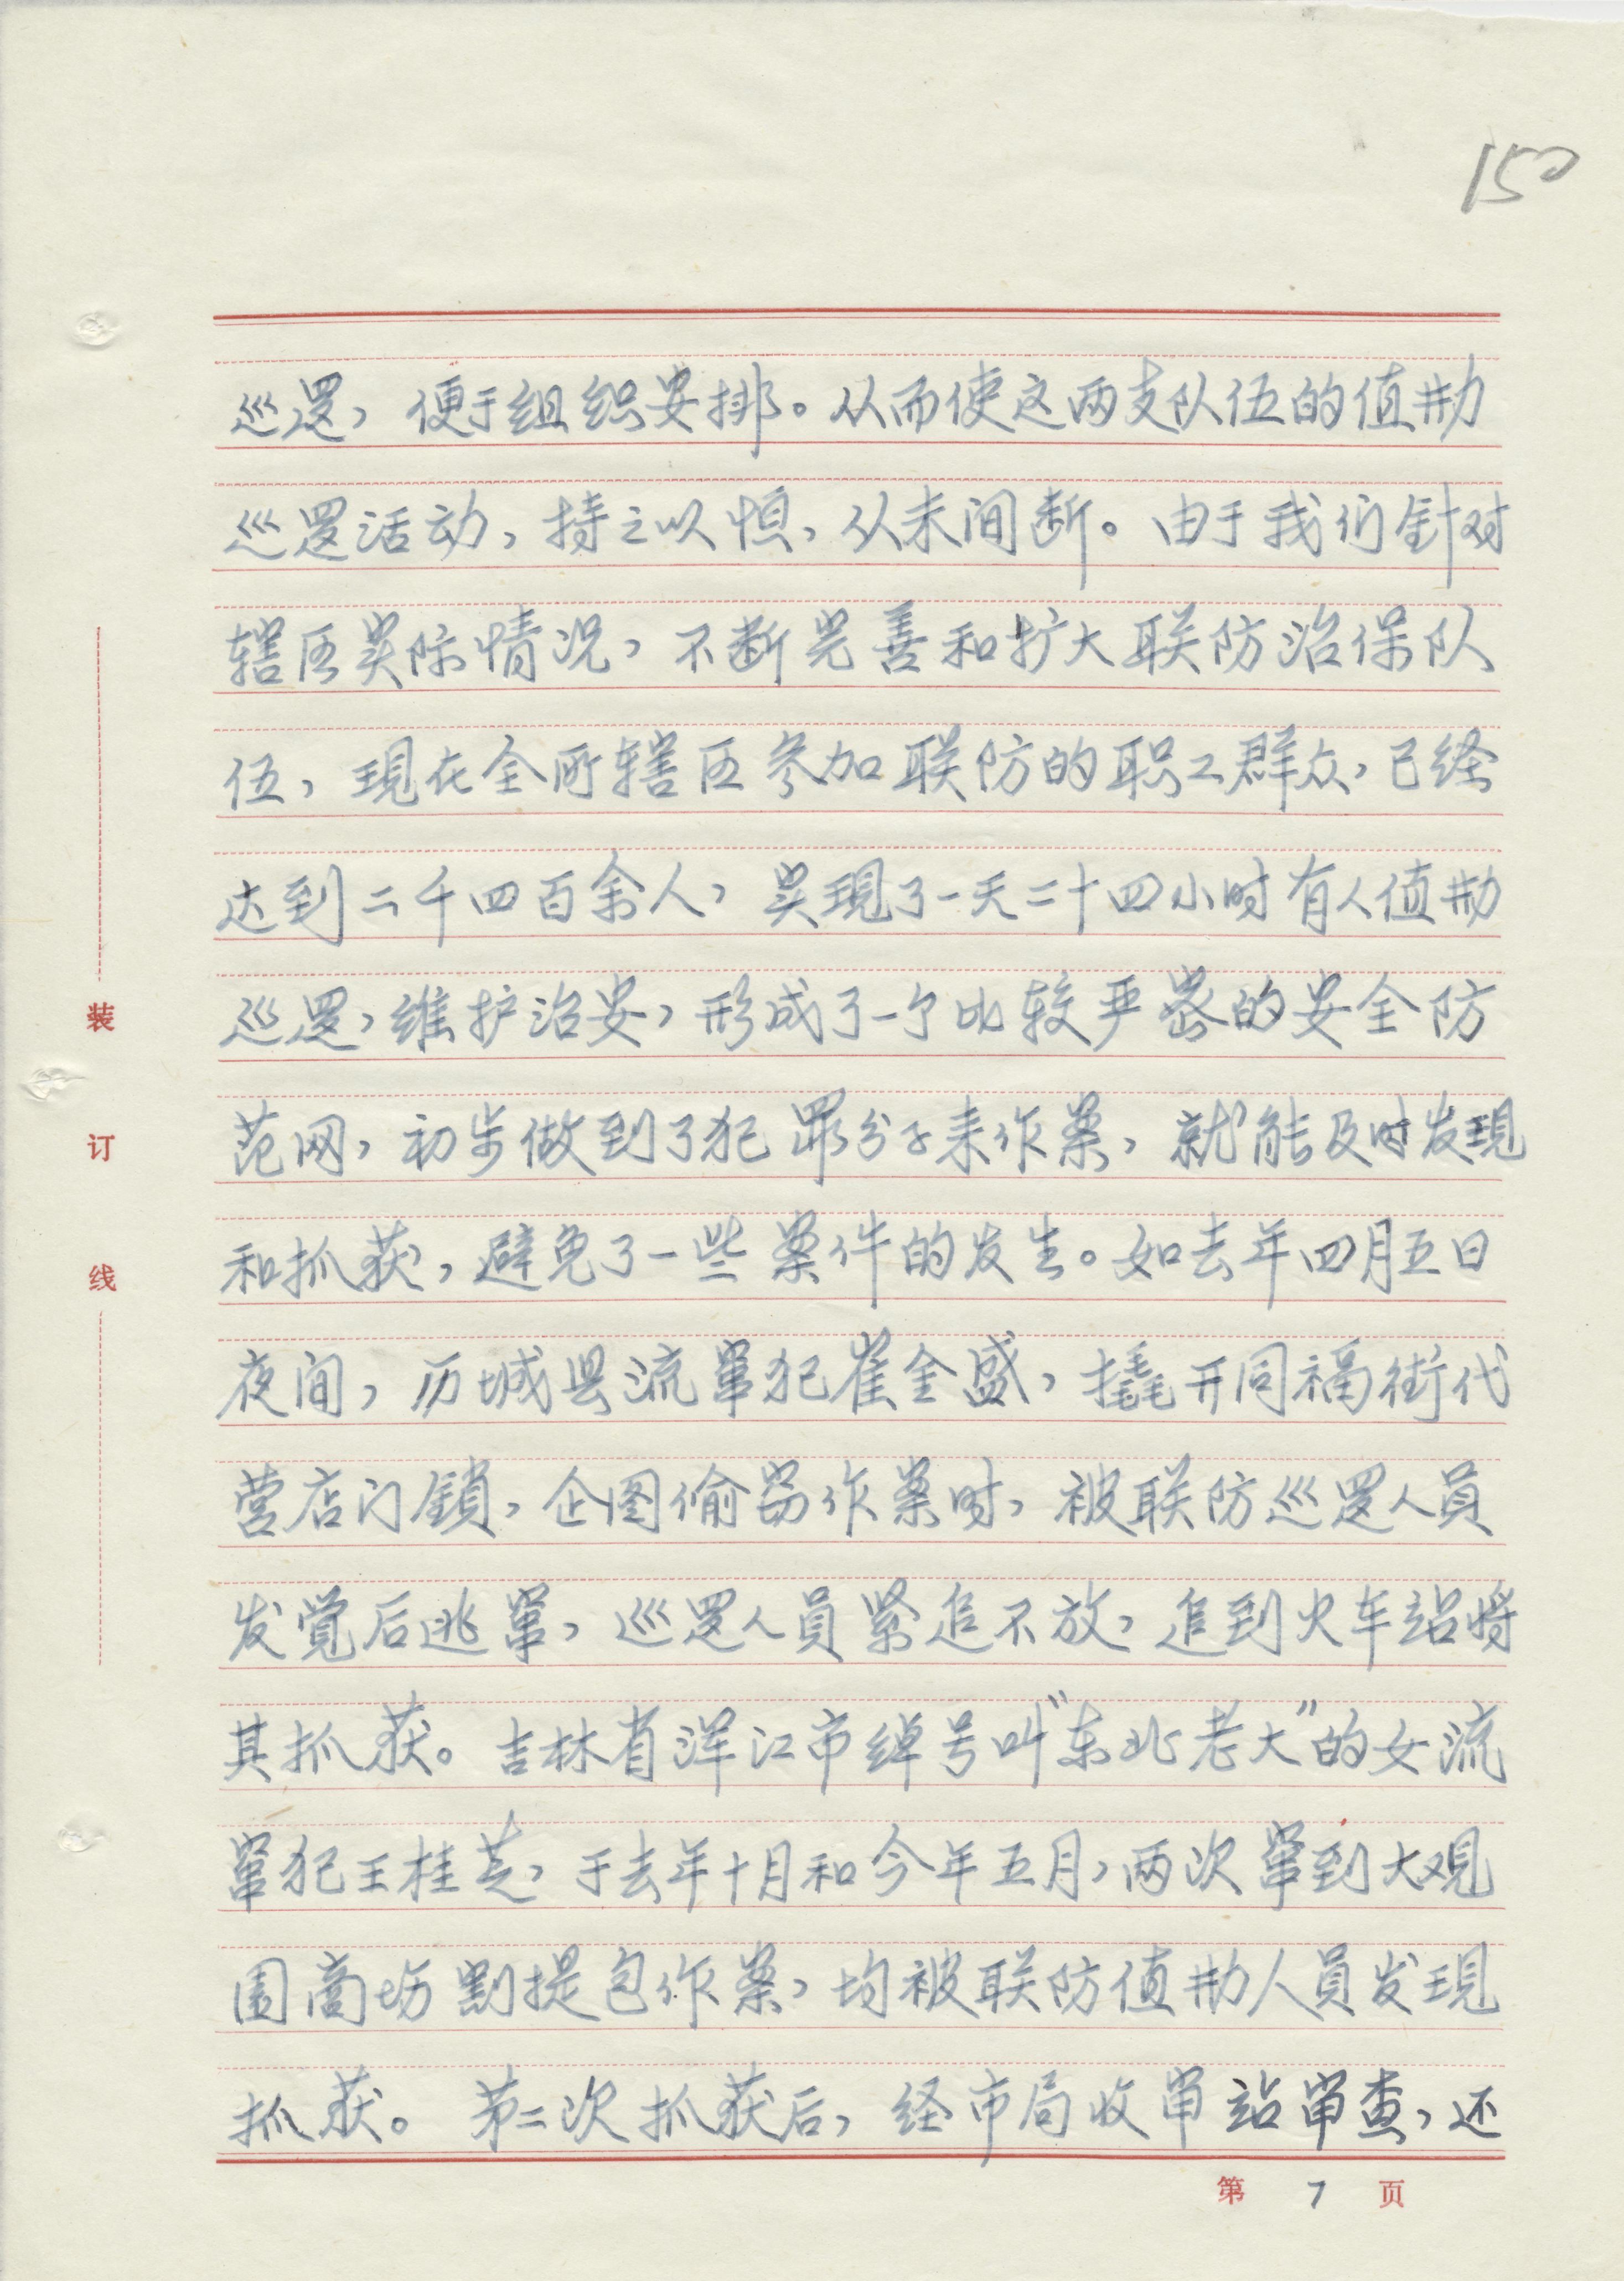 150
巡逻，便于组织安排。从而使这两支队伍的值勤
巡逻活动，持之以恒，从未间断。由于我们针对
辖区实际情况，不断完善和扩大联防治保队
伍，现在全所辖区参加联防的职工群众，已经
达到二千四百余人，实现了一天二十四小时有人值勤
巡逻，维护治安，形成了一个比较严密的安全防
范网，初步做到了犯罪分子来作案，就能及时发现
和抓获，避免了一些案件的发生。如去年四月五日
夜间，历城县流窜犯崔金盛，撬开同福街代
营店门锁，企图偷窃作案时，被联防巡逻人员
发觉后逃窜，巡逻人员紧追不放，追到火车站将
其抓获。吉林省浑江市绰号叫"东北老大"的女流
窜犯王桂芝，于去年十月和今年五月，两次窜到大观
园商场割提包作案，均被联防值勤人员发现
抓获。第二次抓获后，经市局收审站审查，还
第 7 页
装
订
线